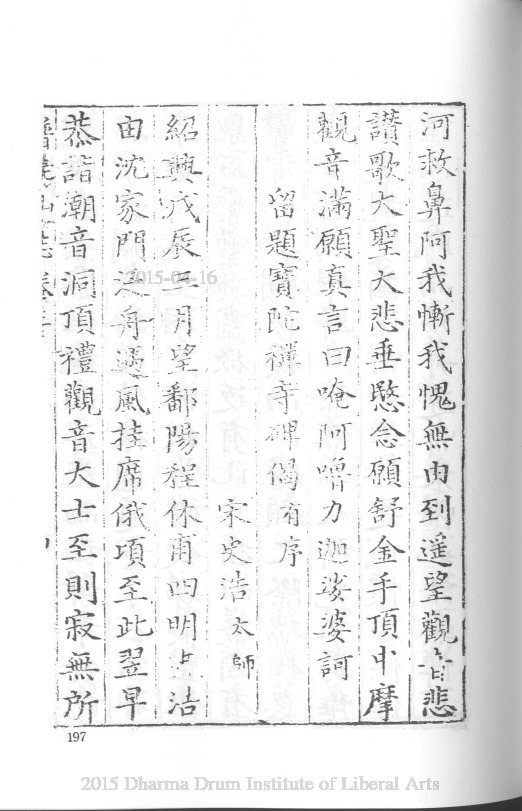 河救鼻阿我慚我愧無由到遥望觀音悲
讃歌大聖大悲垂愍念願舒金手頂中摩
觀音滿願真言曰唵阿嚕力迦娑婆訶
留題寶陀禪寺碑偈有序
宋史浩太師
紹興戊辰三月望鄱陽程休甫四明史浩
由沈家門泛舟遇風挂席俄頃至此翌早
恭詣潮音洞頂禮觀音大士至則寂無所
山志卷
197
2015-04-16
2015 Dharma Drum Institute of Liberal Arts